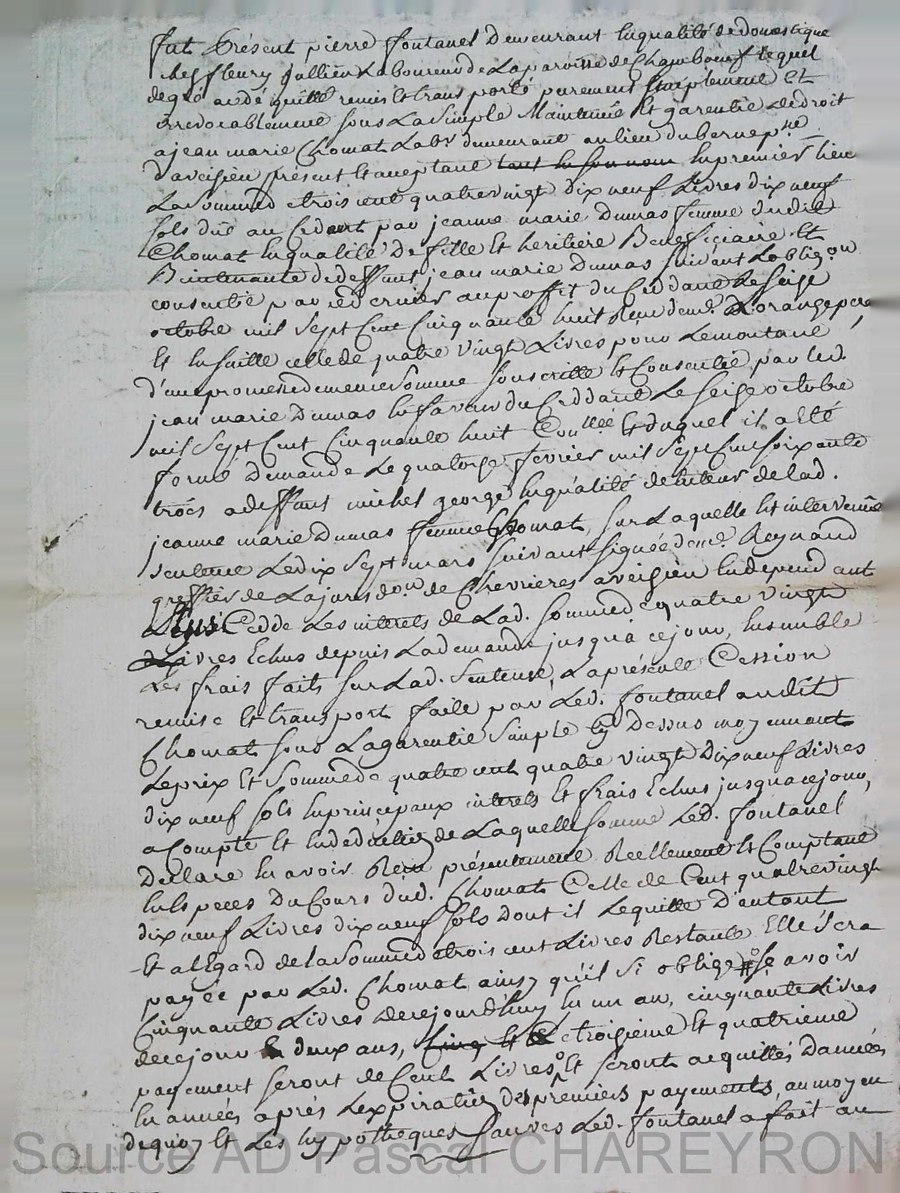 fut présent pierre fontanel demeurant en qualité de domestique
chez fleury jullien Laboureur de La paroisse de Chambœuf Lequel
de gré a cédé quitté remis et transporté purement simplement et
irrevocablement sous La simple Maintenüe et garentie de droit
a jean marie Chomat Labr demeurant au lieu du bernep
d'aveisieu présent et aceptant tant en son nom en premier lieu
La somme de trois cent quatre vingt dix neuf Livres dix neuf
sols düe au Cedant par jeanne marie Dumas femme dudit
Chomat en qualité de fille et heritière Beneficiaire et
Bientenante de deffunt jean marie Dumas suivant Lobligon
consentie par ce dernier au proffit du Ceddant Le seize
octobre mil sept Cent Cinquante huit Reçu deme Lorange
et en suitte celle de quatre vingt Livres pour Le montant
d'une promesse de meme somme souscritte et Consentie par led.
jean marie Dumas en faveur du Ceddant Le seize octobre
mil sept Cent Cinquante huit Conllée et duquel il a eté
formé demande Le quatorze fevrier mil sept Cent soixante
trois a deffunt michel george en qualité de tuteur de lad.
jeanne marie Dumas femme Chomat, sur Laquelle est intervenüe
sentence Le dix sept mars suivant signée deme Reynaud
greffier de La jurisdon de Chevrieres a veisieu independant
plus Cedde Les interets de Lad. somme de quatre vingt
Livres Echus depuis La demande jusqu'à ce jour, ensemble
Les frais faits sur Lad. sentence, La présente Cession
remise et transport faite par Led. fontanel audit
Chomat sous La garentie simple cy Dessus moyennant
Le prix et somme de quatre cent quatre vingt Dix neuf Livres
dix neuf sols en principaux interets et frais Echus jusqua ce jour,
a Compte et en deduction de Laquelle somme Led. fontanel
Declare en avoir Reçu présentement Reellement et Comptant
en Especes du Cours dud. Chomat Celle de Cent quatre vingt
dix neuf Livres dix neuf sols dont il Le quitte D'autant
Et a l'Egard de La somme de trois cent Livres Restante Elle sera
payée par Led. Chomat ainsy qu'il s'i oblige savoir
Cinquante Livres de ce jourdhuy en un an, cinquante Livres
de ce jour en deux ans, Cinq et Le troisieme et quatrieme
payement seront de Cent Livres et seront acquittés D'année
en année après L'expiration des premiers payements, au moyen
de quoy et Les hypotheques sauves Led. fontanel a fait au
Source AD Pascal CHAREYRON